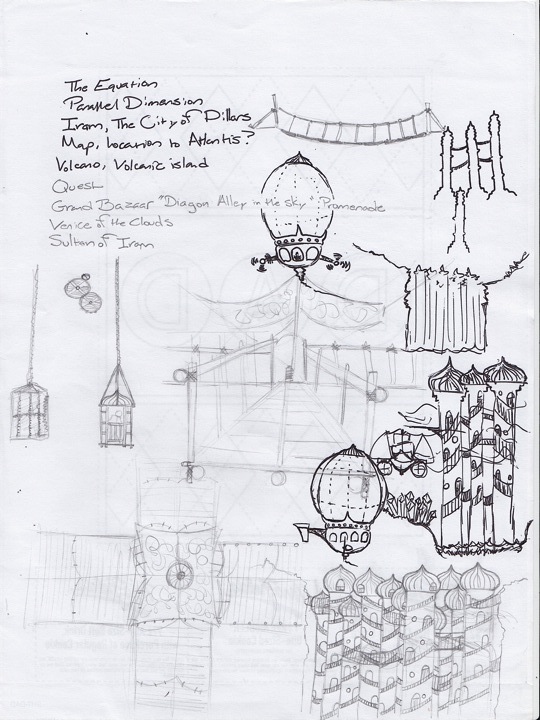 The Equation
Parallel Dimension
Iram, The City of Pillars
Map, Location to Atlantis?
Volcano, Volcanic island
Quest
Grand Bazaar "Diagon Alley in the sky" Promenade
Venice of the Clouds
Sultan of Iram